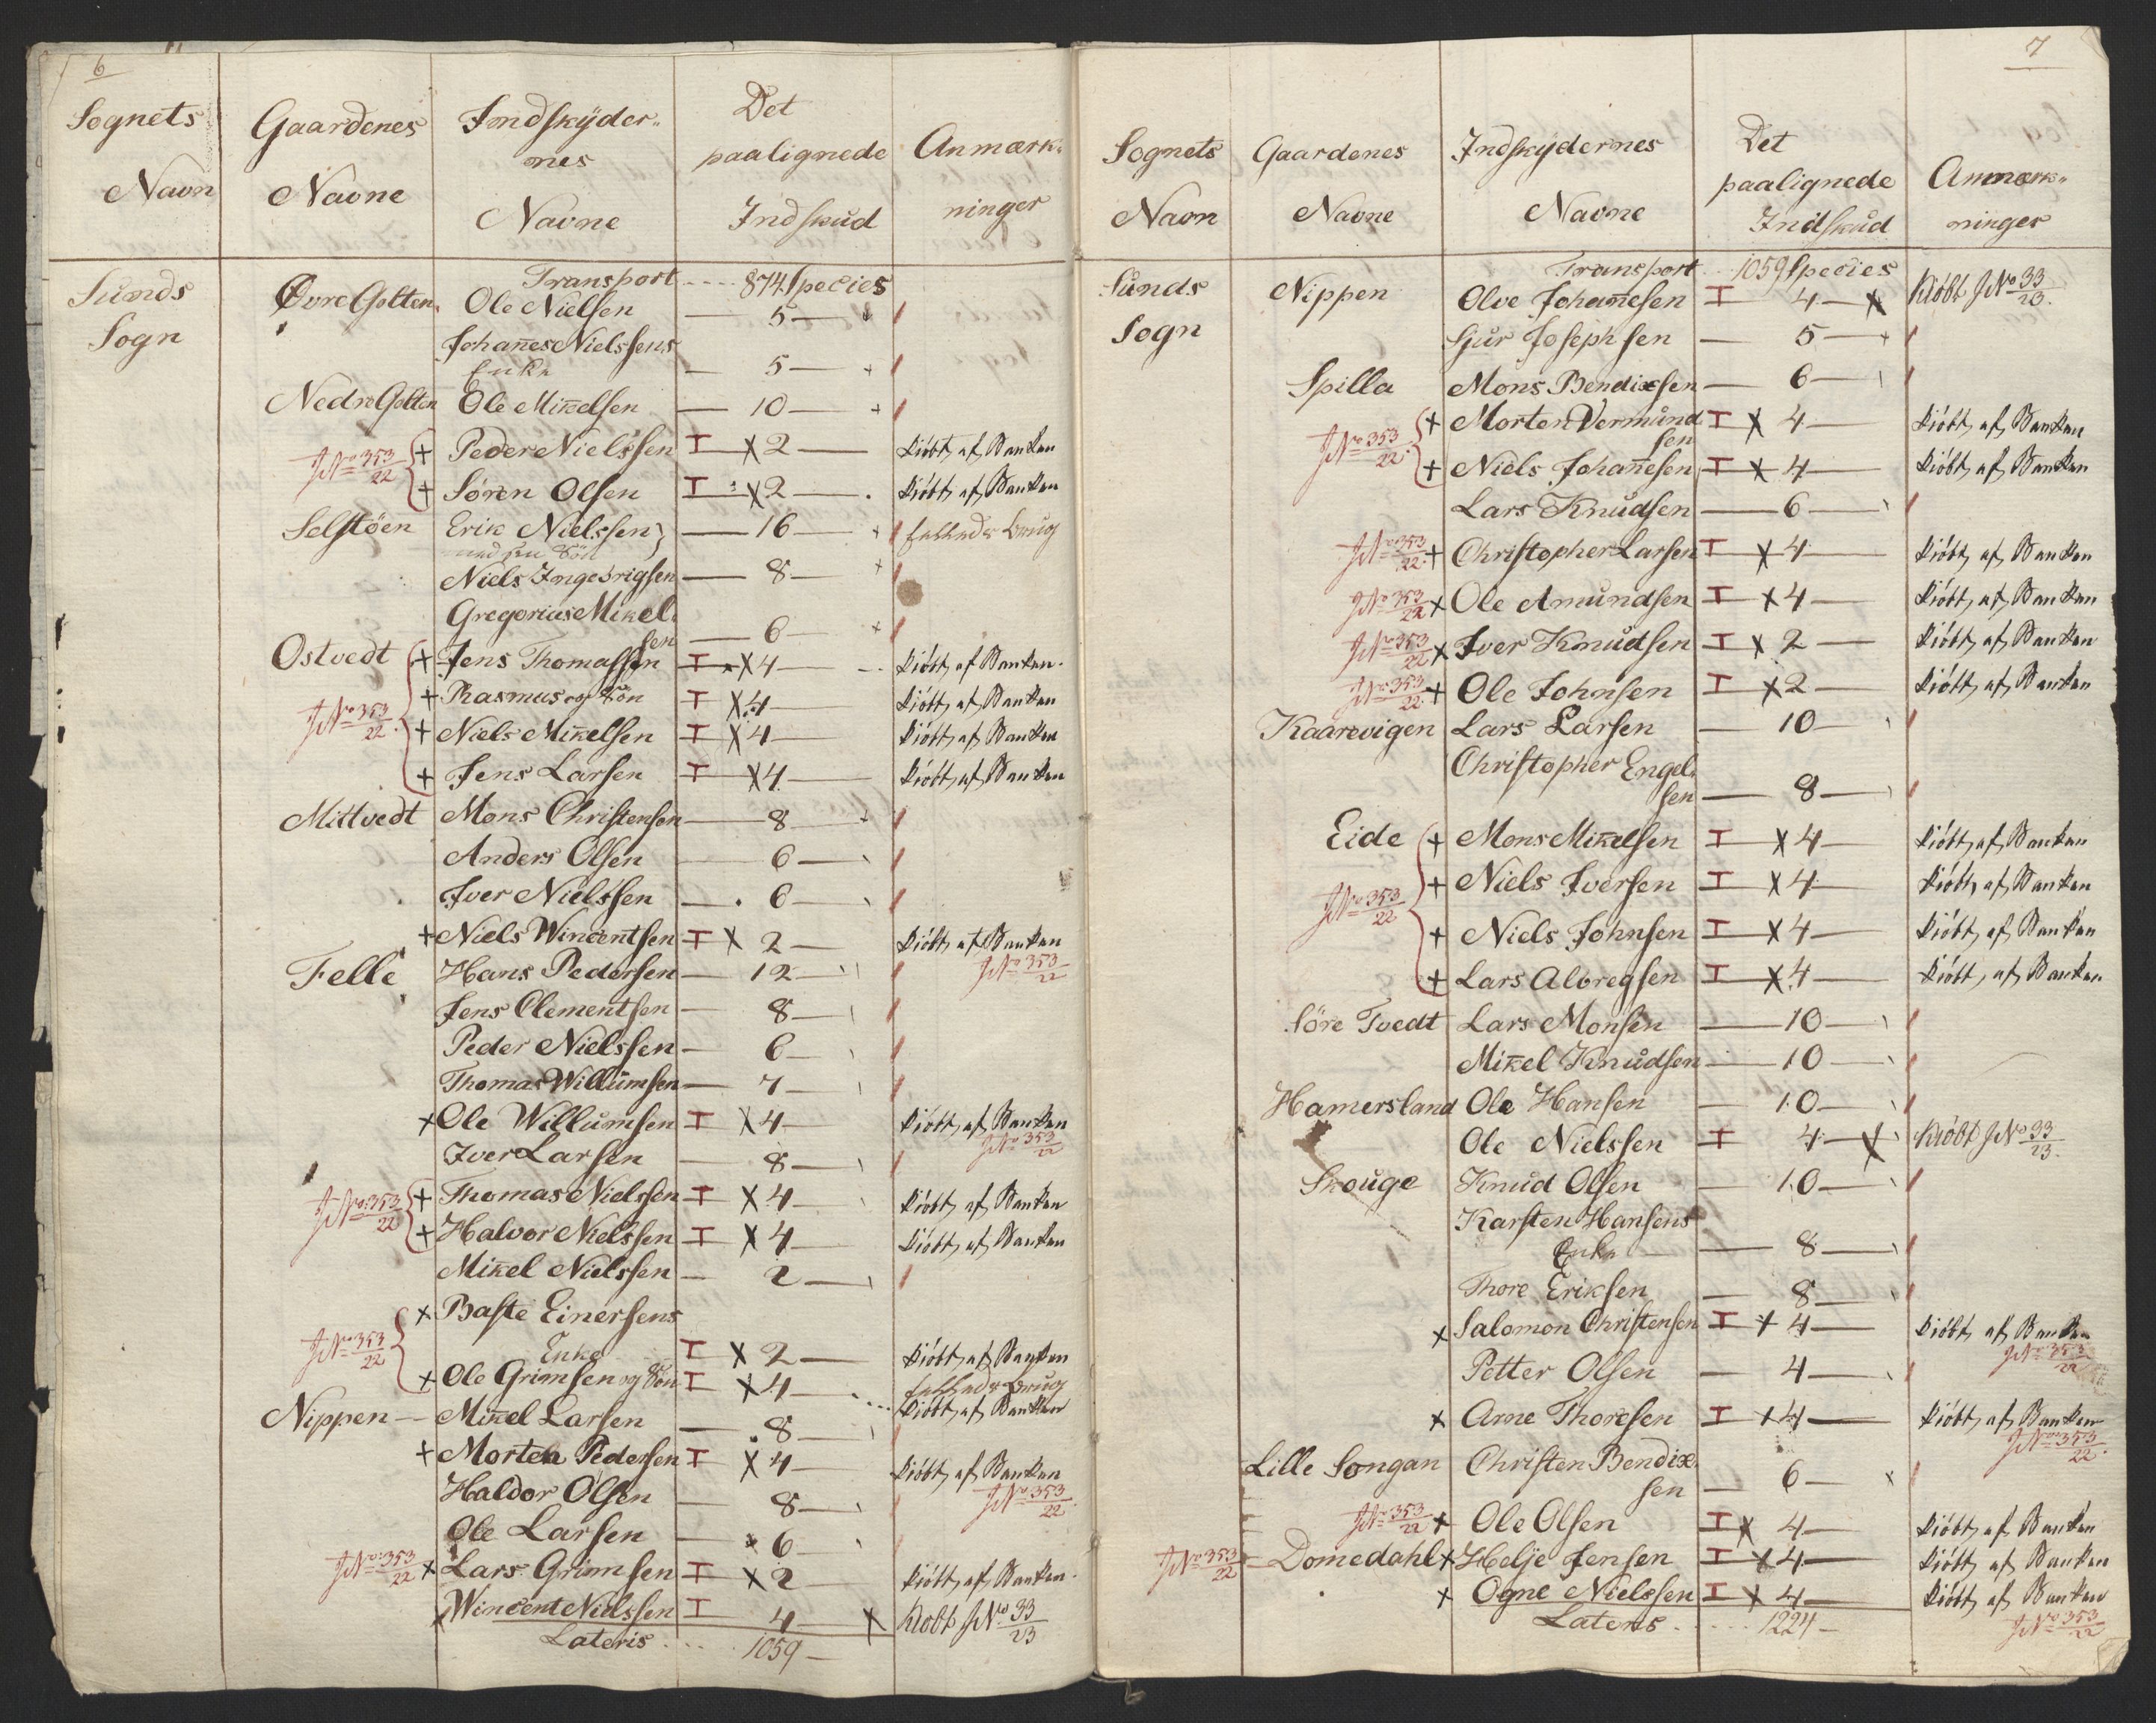 6
Sognets Navn | Gaardenes Navne | Indskÿder-nes Navne | Det paalignede Indskud | Anmærk-ninger
Transport ---- 874 Species
Sunds Sogn | Øvre Golten | Ole Nielsen — 5 —
Johan̄es Nielssens Enke — 5 —
Nedre Golten | Ole Mik̄elsen — 10 —
JNo 353/22 + Peder Nielssen I X 2 — kiöbt af Banken
+ Sören Olsen I X 2 — kiöbt af Banken
Selstöen | Erik Nielssen med sin Sön — 16 — fælleds Brug
Niels Ingebrigsen — 8 —
Gregorius Mikelsen — 6 —
Ostvedt + Jens Thomassen I X 4 — kiöbt af Banken
+ Rasmus og Sön I X 4 — kiöbt af Banken
JNo 353/22 + Niels Mik̄elsen I X 4 — kiöbt af Banken
+ Jens Larsen I X 4 — kiöbt af Banken
Mittvedt | Mons Christensen — 8 —
Anders Olsen — 6 —
Iver Nielssen — 6 —
+ Niels Wincentsen I X 2 — kiöbt af Banken
JNo 353/22
Felle | Hans Pedersen — 12 —
Jens Clementsen — 8 —
Peder Nielssen — 6 —
Thomas Willumsen — 7 —
X Ole Willumsen I X 4 — kiöbt af Banken
JNo 353/22
Iver Larsen — 8 —
JNo 353/22 + Thomas Nielssen I X 4 — kiöbt af Banken
+ Halvor Nielssen I X 4 — kiöbt af Banken
Mik̄el Nielssen — 2 —
X Baste Einersens
JNo 353/22 Enke I X 2 — kiöbt af Banken
X Ole Grimsen og Sön I X 4 — fælleds Brug
kiöbt af Banken
Nippen — Mik̄el Larsen — 8 —
+ Morten Pedersen I X 4 — kiöbt af Banken
JNo 353/22
Haldor Olsen — 8 —
Ole Larsen — 6 —
JNo 353/22 X Lars Grimsen I X 2 — kiöbt af Banken
X Wincent Nielssen I 4 — X Kiöbt JNo 33/23
Lateris .... 1059 —
7
Sognets Navn | Gaardenes Navne | Indskÿdernes Navne | Det paalignede Indskud | Anmærk-ninger
Transport .. 1059 Species
Sunds Sogn | Nippen | Olve Johan̄esen I 4 — X Kiöbt JNo 33/23
Sjur Josephsen — 5 —
Spilla | Mons Bendixsen — 6 —
JNo 353/22 + Morten Vermundsen I X 4 — kiöbt af Banken
+ Niels Johan̄esen I X 4 — kiöbt af Banken
Lars Knudsen — 6 —
JNo 353/22 + Christopher Larsen I X 4 — kiöbt af Banken
JNo 353/22 X Ole Amundsen I X 4 — kiöbt af Banken
JNo 353/22 X Iver Knudtsen I X 2 — kiöbt af Banken
JNo 353/22 + Ole Johnsen I X 2 — kiöbt af Banken
Kaarevigen | Lars Larsen — 10 —
Christopher Engelsen — 8 —
Eide + Mons Mik̄elsen I X 4 — kiöbt af Banken
JNo 353/22 + Niels Iversen I X 4 — kiöbt af Banken
+ Niels Johnsen I X 4 — kiöbt af Banken
+ Lars Albregsen I X 4 — kiöbt af Banken
Söre Tvedt | Lars Monsen — 10 —
Mik̄el Knudsen — 10 —
Hamersland | Ole Hansen — 10 —
Ole Nielssen I 4 — X Kiöbt JNo 33/23
Skouge | Knud Olsen — 10 —
Karsten Hansens
Enke — 8 —
Thore Eriksen — 8 —
X Salomon Christensen I X 4 — kiöbt af Banken
JNo 353/22
Petter Olsen — 4 —
X Arne Thoresen I X 4 — kiöbt af Banken
JNo 353/22
Lille Songan | Christen Bendixsen — 6 —
JNo 353/22 + Ole Olsen I X 4 — kiöbt af Banken
JNo 353/22 Domedahl X Helje Jensen I X 4 — kiöbt af Banken
X Ogne Nielssen I X 4 — kiöbt af Banken
JNo 353/22
Lateris .... 1224 —